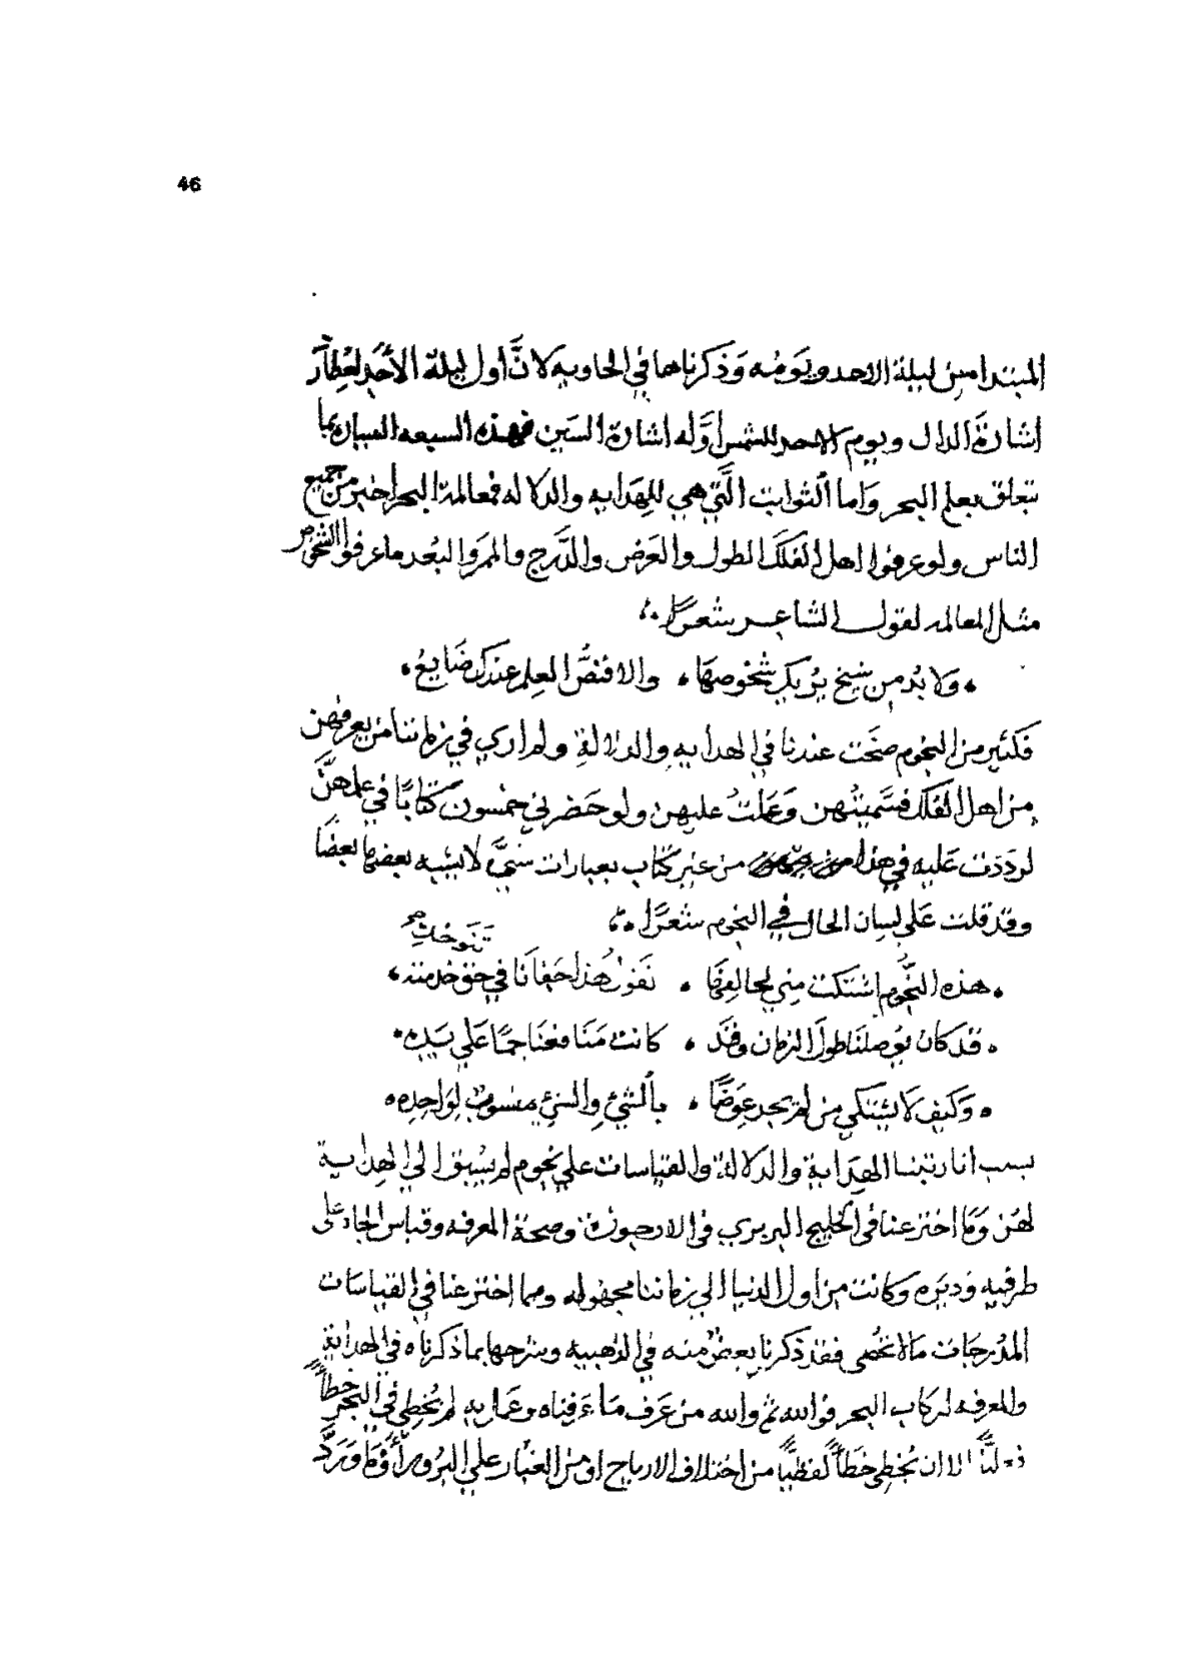 46
المبتدا من ليلة الاحد ويَومُه وَذكرناها في الحاويه لانَّ أول ليلة الأحَد لعُطارَد
اشارة الدال ويوم الاحد للشمس أوَّله اشارة السَين فهذه السبعه السيارة بما
تتعلق بعلم البحر وَاما الثوابت الَّتي هي للهداية والدلاله فمعالمة البحر اخبر من جميع
الناس ولو عرفوا اهل الفلَك الطول والعَرض والدَّرج والممرَ والبُعد ما عرفوا الشخوص
مثل المعالمه لقول الشاعر شعرًا
وَلا بُد مِن شيخ يُريك شُخوصهَا والا فنصُّ العِلم عندك ضَايعُ
فكثير من النجوم صَحَت عندنا في الهدايه والدلالةِ ولم ارى في زماننا مَن يعرفهن
مِن اهل الفلك فسَّميتُهن وَعَملتُ عليهن ولو حَضرني خمسون كتابًا في علمهنَّ
لردَدت عَليه في هذا من غير كتاب بعبارات شتىَّ لا يشبه بعضها بعضَا
وقد قلت عَلى لِسان الحال في النجوم شعرًا
تنوخك
هذه النُّجوم اشتكت مِني لخالقِهَا تقول هَذا حَفانَا في حق خدمته
قد كانَ يُوصلنَا طولَ الزمان وقد كانت مَنَافعُنَا جمًا عَلى يَدِه
وَكيف لا يَشتكي مِن لم يجد عِوَضًا بالشئ والشئ منسوبٌ لوَاحِدِه
بسبب انا رتبنا الهِدَاية والدلالة والقياسات على نجوم لم يسبق الى الهداية
لهُن وَمَا اخترعنا في الخليج البربري في الارجوزة وصحة المعرفه وقياس الجاه على
طرفيه وَديَره وكانت مِن أول الدنيا الى زماننا مجهوله ومما اخترعنا في القياسَات
المُدرجَات مَالا تحُصى فقد ذكرنا بعضٌ منه في الذهبيه وشرحها بما ذكرناه في الهدايةِ
والمعرفه لركاب البحر فوالله ثم والله من عَرف مَا عَرفناه وعَمل به لم يُخطى في البَحر خطأً
الا ان يُخطى خَطأً لفظيًا من اختلاف الارياح او من الغبَار على البُر